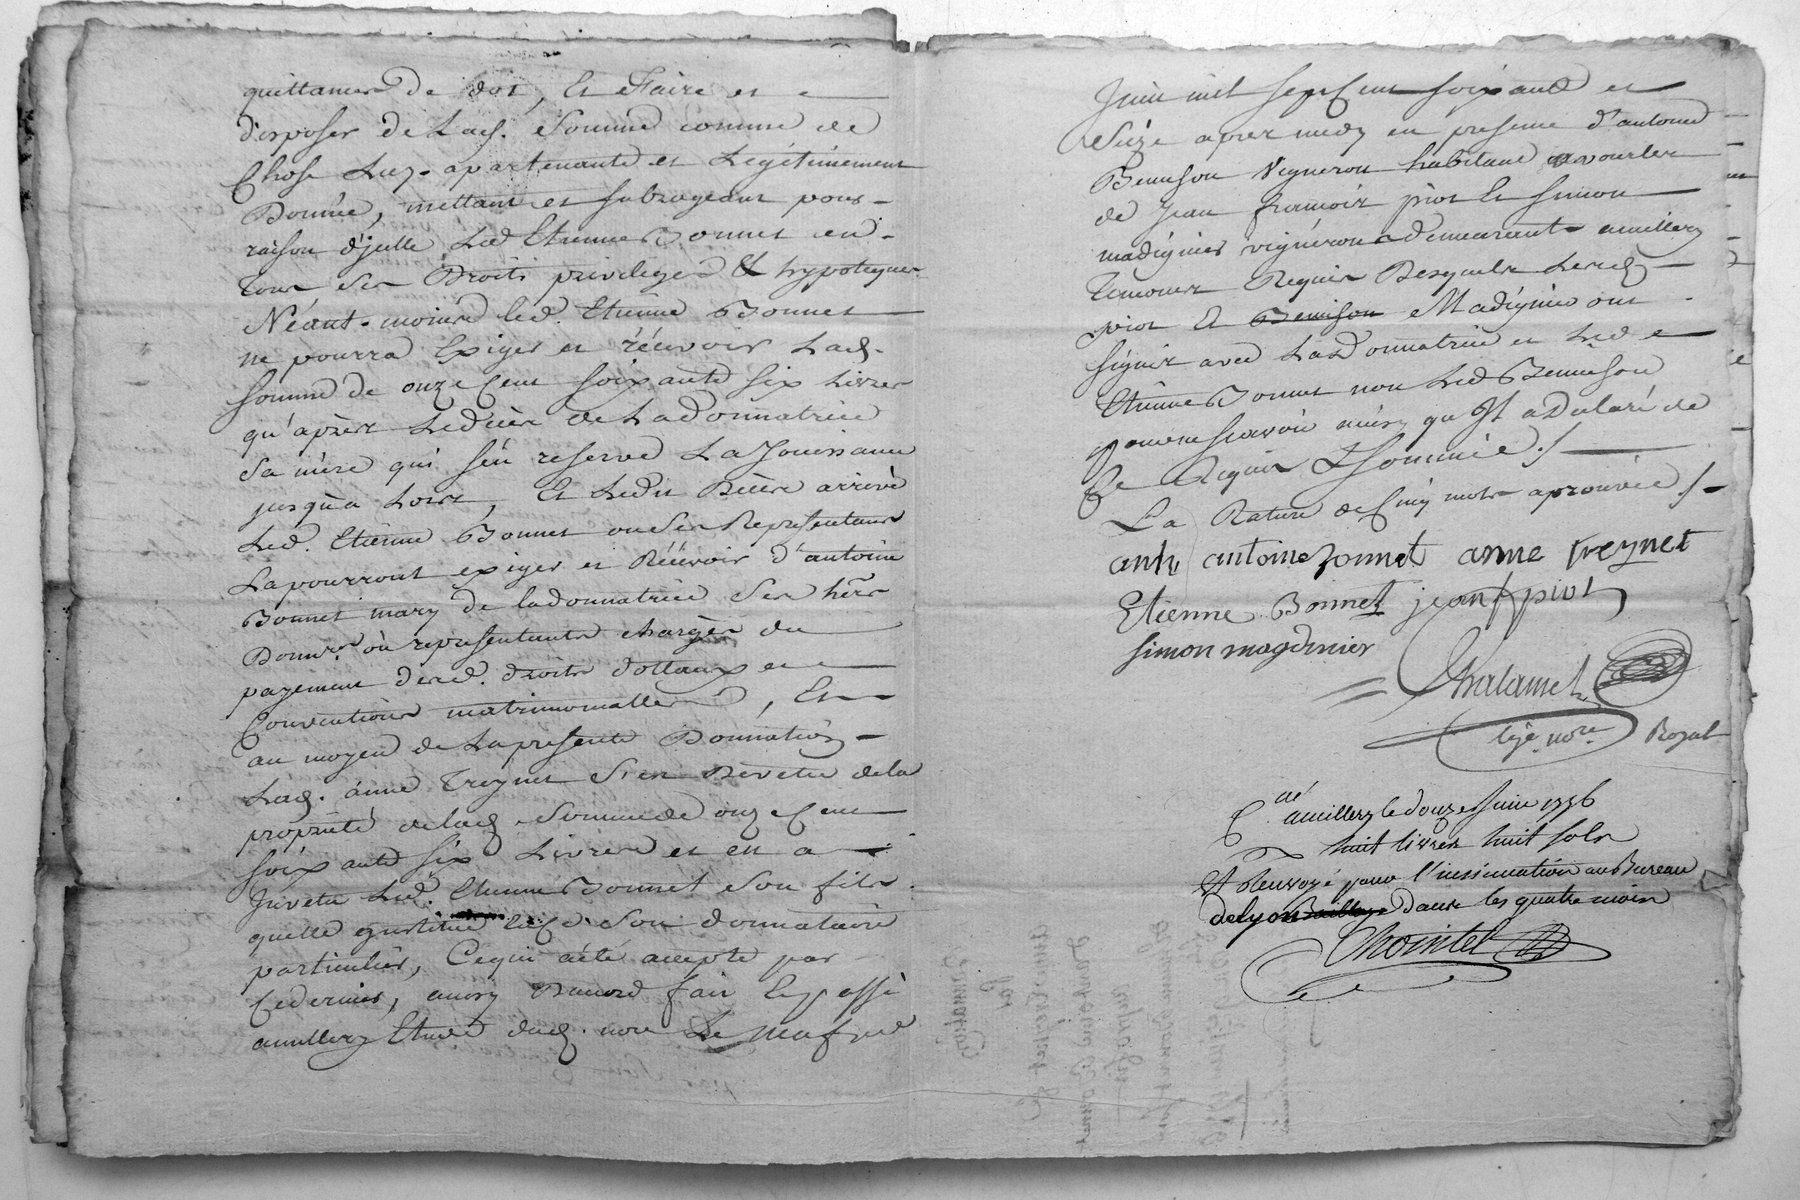 quittances de dot, Et Faire et
disposer de Lad. Somme comme de
Chose Luy apartenante et Légitimement
Donnée, mettant et subrogeant pour
raison d'jcelle Led Etienne Bonnet en
Tous Ses Droits privileges Et hypoteques
Néant-moins led. Etienne Bonnet
ne pourra Exiger et réçevoir Lad.
somme de onze Cent soixante six Livres
qu'après Ledécès de Ladonnatrice
Sa mère qui s'en reserve La Jouissance
jusqu'a Lors, Et Ledit Décès arrivé
Led. Etienne Bonnet ou Ses Representans
La pourront exiger et Réçevoir d'antoine
Bonnet mary de ladonnatrice Ses hers
Donnrs ou representants chargés du
payement desd. droits dottaux et
Conventions matrimonialles, Et
au moyen de Laprésente Donnation
Lad. anne Treynet S'est Dévetue dela
proprieté delad Somme de onze Cent
soixante six Livres et en a
Jnvetu Led. Etienne Bonnet Son fils
quelle institue Son donnataire
particulier, Cequi aété accepté par
Cedernier, ainsy Daccord fait Et passé
amillery Etude dud. nore Le neuf
Juin mil sept Cent soixante et
Seize apres midy en presence d'antoine
Benisson Vigneron habitant a vourles
de Jean françois piot Et simon
madignier vigneron demeurant amillery
Temoins Requis Lesquels Lesd
piot Et Benison Madignier ont
signés avec Ladonnatrice et Led
Etienne Bonnet non Led Benisson
pour ne sçavoir ainsy qu'Il a Déclaré de
Ce Requis Et Sommé ./.
La Rature de Cinq mots aprouvée ./.
anth antoine bonnet anne treynet
Etienne Bonnet jean f piot
simon magdinier
Chalamel
Royal
Clé amillery le douze Juin 1776
huit livres huit sols
Et Renvoyé pour l'insinuation au Bureau
de lyon Baillage dans les quatre mois
Thointel